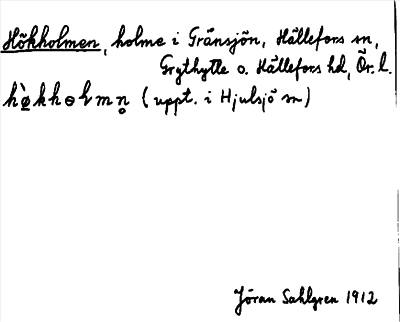 Hökholmen, holme i Gränsjön, Hällefors sn,
Grythytte o. Hällefors hd, Ör. l.
(uppt. i Hjulsjö sn)
Jöran Sahlgren 1912